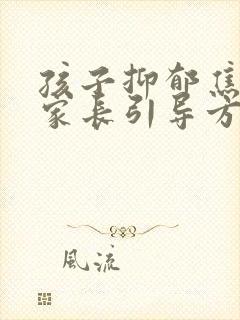 孩子抑郁焦
家长引导方
風流